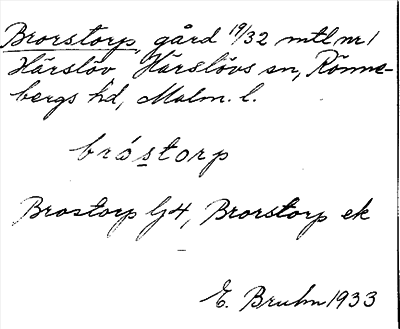 Brorstorp gård 19/32 mtl nr 1
Härslöv, Härslövs sn, Rönne-
bergs hd, Malm. l.
bróstorp
Brostorp lj 4, Brorstorp ek
E. Bruhn 1933